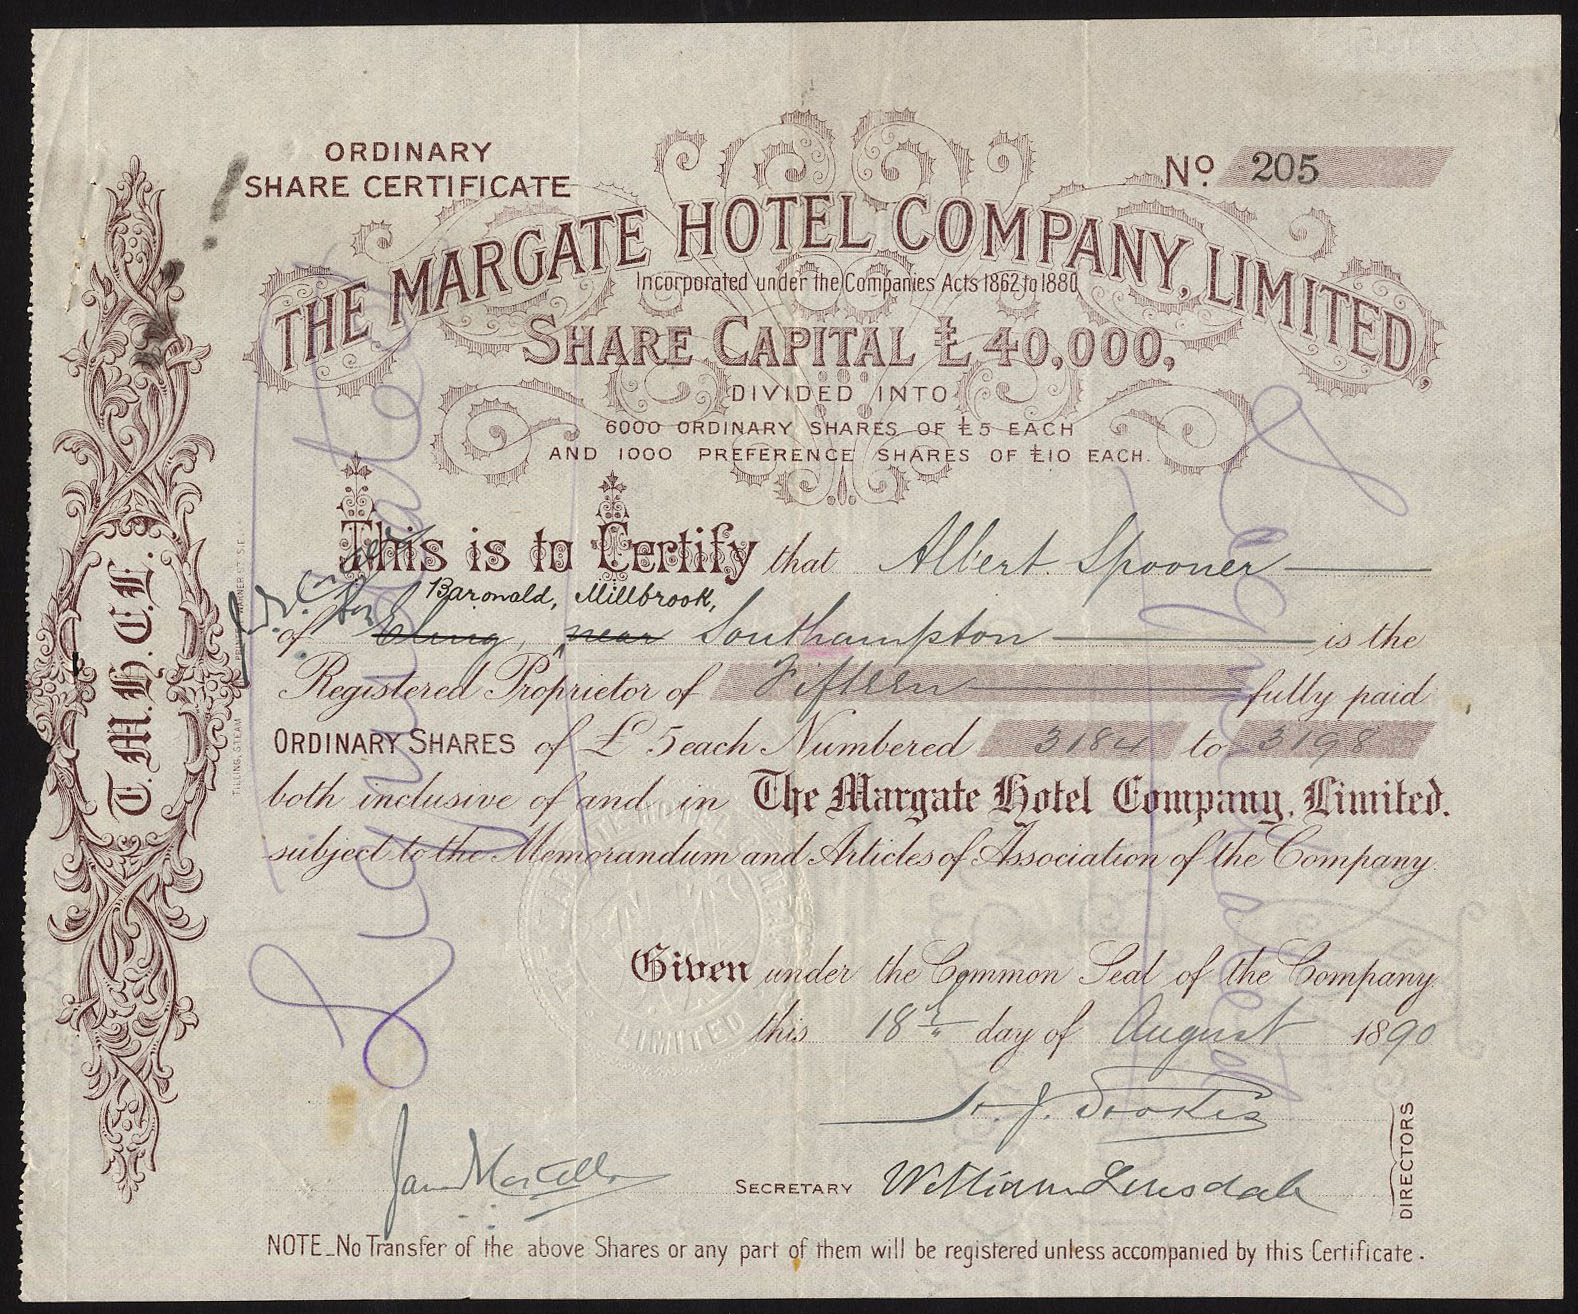 ORDINARY
SHARE CERTIFICATE
No 205
THE MARGATE HOTEL COMPANY, LIMITED,
Incorporated under the Companies Acts 1862 to 1880
SHARE CAPITAL £40,000,
DIVIDED INTO
6000 ORDINARY SHARES OF £5 EACH
AND 1000 PREFERENCE SHARES OF £10 EACH.
This is to Certify that Albert Spooner
Baronald, Millbrook,
of Eling, near Southampton is the
Registered Proprietor of Fifteen fully paid
ORDINARY SHARES of £5 each Numbered 3184 to 3198
both inclusive of and in The Margate Hotel Company, Limited.
subject to the Memorandum and Articles of Association of the Company.
Given under the Common Seal of the Company
this 18th day of August 1890
SECRETARY William
DIRECTORS
NOTE_No Transfer of the above Shares or any part of them will be registered unless accompanied by this Certificate.
T.M.H.C.L.
LIMITED